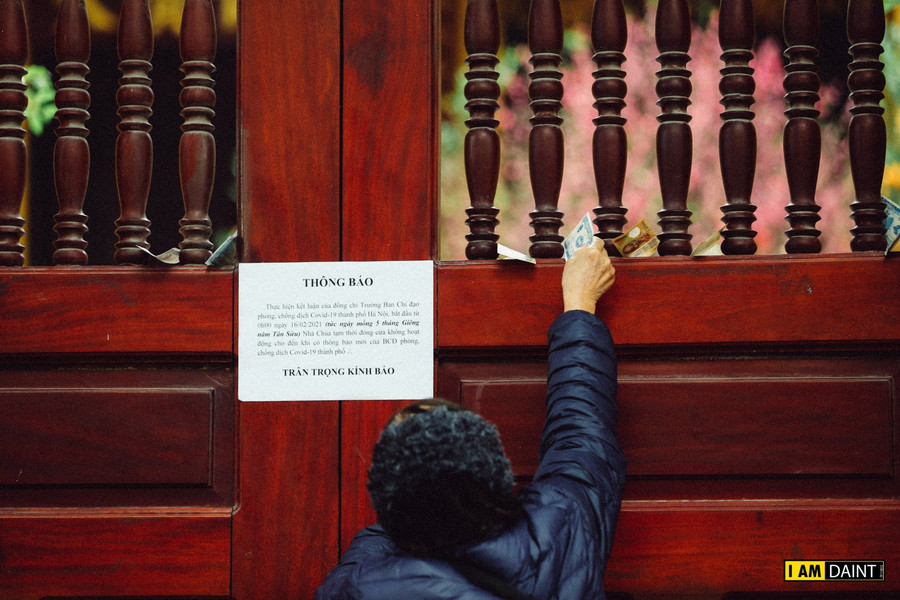 THÔNG BÁO
Thực hiện kết luận của đồng chí Trưởng Ban Chỉ đạo
phòng, chống dịch Covid-19 thành phố Hà Nội, bắt đầu từ
0h00 ngày 16/02/2021 (tức ngày mồng 5 tháng Giêng
năm Tân Sửu) Nhà Chùa tạm thời đóng cửa không hoạt
động cho đến khi có thông báo mới của BCĐ phòng,
chống dịch Covid-19 thành phố ./.
TRÂN TRỌNG KÍNH BÁO
I AM DAINT